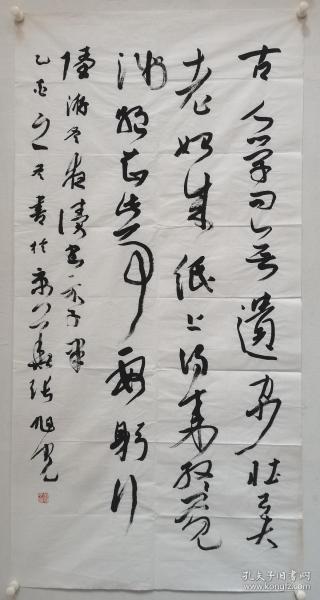 古人学问无遗力少壮工夫
老始成纸上得来终觉
浅绝知此事要躬行
陆游冬夜读书示子聿
乙酉之冬书于京
孔夫子旧书网